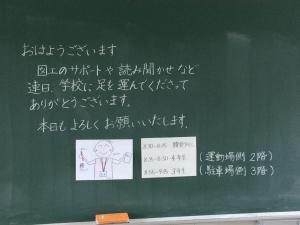 おはようございます
図工のサポートや読み聞かせなど
連日、学校に足を運んでくださって
ありがとうございます。
本日もよろしくお願いいたします。
(運動場側 2階)
(駐車場側 3階)